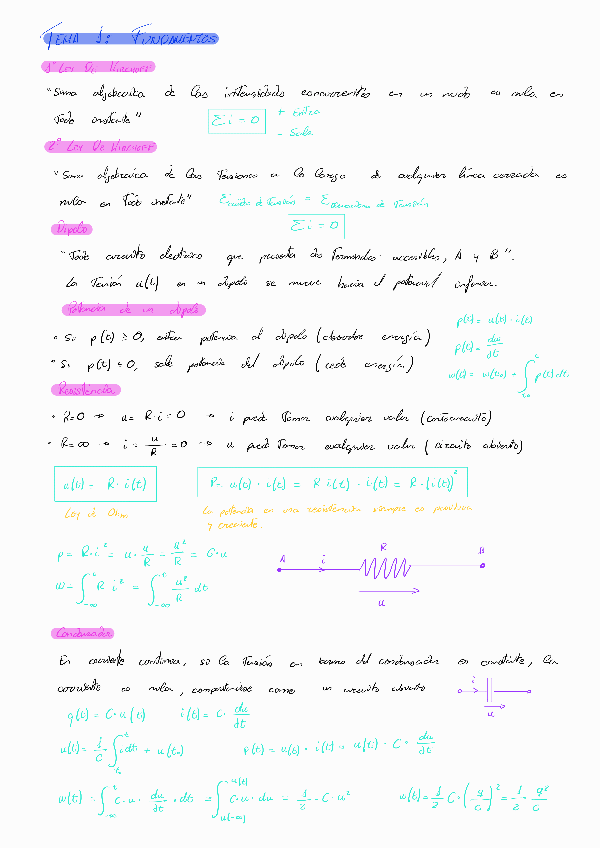 TEMA 1: FUNDAMENTOS
1ª LEY DE KIRCHOFF
"Suma algebraica de las intensidades concurrentes en un nudo es nula en
todo instante" Σi = 0 + Entra
- Sale
2ª LEY DE KIRCHOFF
"Suma algebraica de las tensiones a lo largo de cualquier línea cerrada es
nula en todo instante"
Σi = 0
Dipolo
"Todo circuito eléctrico que presenta dos terminales accesibles, A y B".
La tensión u(t) en un dipolo se mueve hacia el potencial inferior.
Potencia de un dipolo
p(t) = u(t) · i(t)
• Si p(t) ≥ 0, entra potencia al dipolo (absorbe energía)
p(t) = du/dt
• Si p(t) < 0, sale potencia del dipolo (cede energía)
w(t) = w(t₀) + ∫ p(t) dt
Resistencia
• R=0 → u = R·i = 0 → i puede tomar cualquier valor (cortocircuito)
• R=∞ → i = u/R = 0 → u puede tomar cualquier valor (circuito abierto)
u(t) = R·i(t) P = u(t)·i(t) = R·i(t)·i(t) = R·(i(t))²
Ley de Ohm La potencia en una resistencia siempre es positiva
y creciente.
p = R·i² = u·u/R = u²/R = G·u
A i R B
w = ∫ R i² = ∫ u²/R · dt
u
Condensador
En corriente continua, si la tensión en bornes del condensador es constante, la
corriente es nula, comportándose como un circuito abierto i
u
q(t) = C·u(t) i(t) = C· du/dt
u(t) = 1/C ∫ i dt + u(t₀) p(t) = u(t)·i(t) = u(t)·C· du/dt
w(t) = ∫ C·u· du/dt · dt = ∫ C·u·du = 1/2·C·u² w(t) = 1/2 C·(q/c)² = 1/2 · q²/c